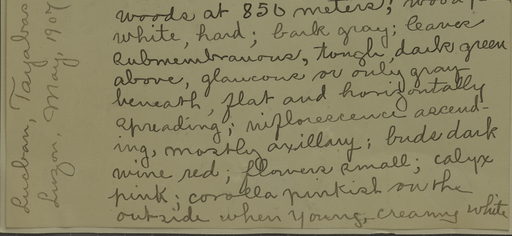 woods at 850 meters; wood
white, hard; bark gray; leaves
submembranous, tough, dark green
above, glaucous or only gray
beneath, flat and horizontally
spreading; inflorescence ascend-
ing, mostly axillary; buds dark
wine red; flowers small; calyx
pink; corolla pinkish on the
outside when young, creamy white
Lucban, Tayabas
Luzon, May, 1907